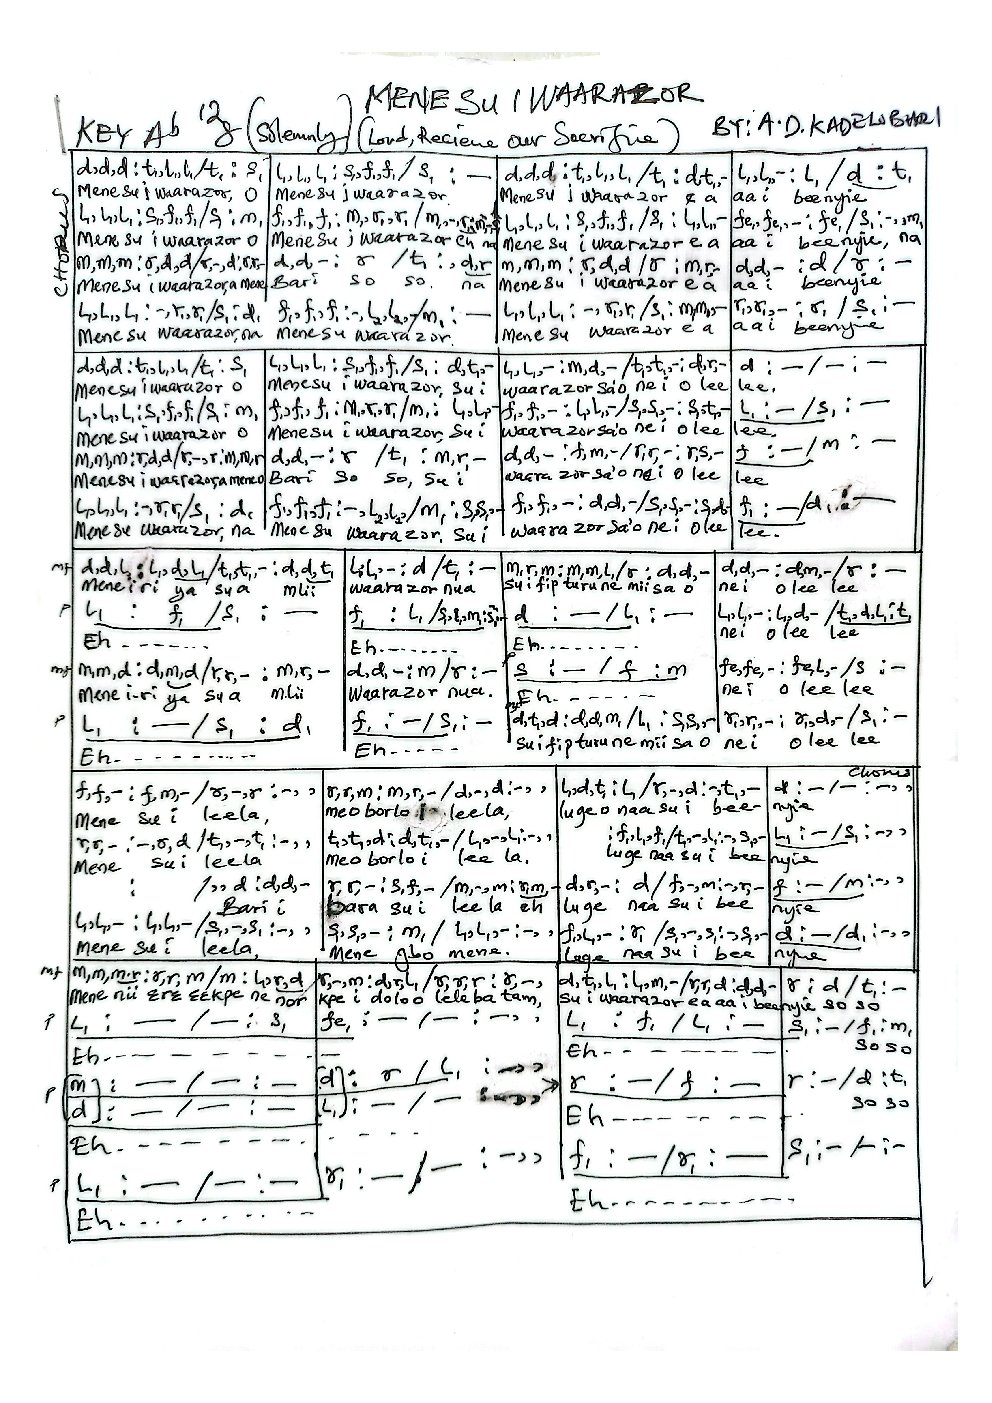 MENE SU I WAARAZOR
KEY Ab 12/8 (Solemnly) (Lord, Recieve our Sacrifice) BY: A.D. KADELOBARI
CHORUS
d,d,d : t₁,l₁,l₁ / t₁ : s₁ | l₁,l₁,l₁ : s₁,f₁,f₁ / s₁ : — | d,d,d : t₁,l₁,l₁ / t₁ : d,t₁,- | l₁,l₁,- : l₁ / d : t₁
Mene su i waarazor, O | Mene su i waarazor. | Mene su i waarazor e a | aa i beenyie
l₁,l₁,l₁ : s₁,f₁,f₁ / s₁ : m₁ | f₁,f₁,f₁ : m₁,r₁,r₁ / m₁,- | l₁,l₁,l₁ : s₁,f₁,f₁ / s₁ : l₁,l₁,- | fe₁,fe₁,- : fe₁ / s₁ : -,-,m₁
Mene su i waarazor O | Mene su i waarazor eh na | Mene su i waarazor e a | aa i beenyie, na
m,m,m : r,d,d / r,-,d : r,r,- | d,d,- : r / t₁ : , d,r | m,m,m : r,d,d / r : m,r,- | d,d,- : d / r : —
Mene su i waarazor, a mene | Bari so so. na | Mene su i waarazor e a | aa i beenyie
l₁,l₁,l₁ : -,r,r / s₁ : d₁ | f₁,f₁,f₁ : -,l₂,l₂ / m₁ : — | l₁,l₁,l₁ : -,r,r / s₁ : m,m,- | r₁,r₁,- : r₁ / s₁ : —
Mene su waarazor, na | Mene su waarazor. | Mene su waarazor e a | aa i beenyie
d,d,d : t₁,l₁,l₁ / t₁ : s₁ | l₁,l₁,l₁ : s₁,f₁,f₁ / s₁ : d,t₁,- | l₁,l₁,- : m,d,- / t₁,t₁,- : d,r,- | d : — / — : —
Mene su i waarazor O | Mene su i waarazor, Su i | waarazor sa'o ne i O lee | lee.
l₁,l₁,l₁ : s₁,f₁,f₁ / s₁ : m₁ | f₁,f₁,f₁ : m₁,r₁,r₁ / m₁ : l₁,l₁,- | f₁,f₁,- : l₁,l₁,- / s₁,s₁,- : s₁,t₁,- | l₁ : — / s₁ : —
Mene su i waarazor O | Mene su i waarazor, Su i | waarazor sa'o ne i O lee | lee.
m,m,m : r,d,d / r,-,r : m,m,r | d,d,- : r / t₁ : m,r,- | d,d,- : f,m,- / r,r,- : r,s,- | f : — / m : —
Mene su i waarazor, a mene O | Bari so so, su i | waarazor sa'o ne i O lee | lee
l₁,l₁,l₁ : -,r,r / s₁ : d₁ | f₁,f₁,f₁ : -,l₂,l₂ / m₁ : s₁,s₁,- | f₁,f₁,- : d,d,- / s₁,s₁,- : s₁,d,- | f₁ : — / d₁ : —
Mene su waarazor, na | Mene su waarazor, Su i | waarazor sa'o ne i O lee | lee.
mf d,d,l₁ : l₁,d,l₁ / t₁,t₁,- : d,d,t₁ | l₁,l₁,- : d / t₁ : — | m,r,m : m,m,l₁ / r : d,d,- | d,d,- : d,m,- / r : —
Mene i ri ya su a mlii | waarazor nua | su i fip turu ne mii sa o | ne i o lee lee
p l₁ : f₁ / s₁ : — | f₁ : l₁ / s₁,t₁,m₁ : s₁,- | d : — / l₁ : — | l₁,l₁,- : l₁,d,- / t₁,d,l₁ : t₁
Eh - - - - - - | Eh - - - - - | Eh - - - - - - - | ne i o lee lee
mf m,m,d : d,m,d / r,r,- : m,r,- | d,d,- : m / r : — | s : — / f : m | fe,fe,- : fe,l,- / s : —
Mene i-ri ya su a mlii | waarazor nua. | Eh - - - - - - | ne i o lee lee
p l₁ : — / s₁ : d₁ | f₁ : — / s₁ : — | d,t₁,d : d,d,m, / l₁ : s₁,s₁,- | r₁,r₁,- : r₁,d,- / s₁ : —
Eh - - - - - - - - | Eh - - - - - | su i fip turu ne mii sa o | ne i o lee lee
Chorus
f,f,- : f,m,- / r,-,r : -,, | r,r,m : m,r,- / d,-,d : -,, | l₁,d,t₁ : l₁ / r,-,d : -,t₁,- | d : — / — : -,,
Mene su i leela, | me o borlo i leela, | luge o naa su i bee- | nyie
r,r,- : -,r,d / t₁,-,t₁ : -,, | t₁,t₁,d : d,t₁,- / l₁,-,l₁ : -,, | : f₁,l₁,f₁ / t₁,-,l₁ : -,s₁,- | l₁ : — / s₁ : -,,
Mene su i leela | me o borlo i lee la, | luge naa su i bee | nyie
: / ,, d : d,d,- | r,r,- : s,f,- / m,-,m : r,m,- | d,r,- : d / f,-,m : -,r,- | f : — / m : -,,
Bari i | bara su i leela eh | luge naa su i bee | nyie
l₁,l₁,- : l₁,l₁,- / s₁,-,s₁ : -,, | s₁,s₁,- : m₁ / l₁,l₁,- : -,, | f₁,l₁,- : r₁ / s₁,-,s₁ : -,s₁,- | d : — / d₁ : -,,
Mene su i leela, | Mene gbo mene. | luge naa su i bee | nyie
mf m,m,m.r : r,r,m / m : l₁,r,d | r,-,m : d,r,l₁ / r,r,r : r,- | d,t₁,l₁ : l₁,m,- / r,r,d : d,d,- | r : d / t₁ : —
Mene nii ɛrɛ ɛɛkpe ne nor | kpe i doloo leleba tam, | su i waarazor e a aa i beenyie so so
p l₁ : — / — : s₁ | fe₁ : — / — : -,, | l₁ : f₁ / l₁ : — | s₁ : — / f₁ : m₁
Eh - - - - - - - - | Eh - - - - - - - | so so
p [m] : — / — : — | [d] : r / l₁ : -,, | r : — / f : — | r : — / d : t₁
[d] : — / — : — | [l₁] : — / — : -,, | Eh - - - - - - - - | so so
Eh - - - - - - - - - -
p l₁ : — / — : — | r₁ : — / — : -,, | f₁ : — / r₁ : — | s₁ : — / — : —
Eh - - - - - - - - | Eh - - - - - - - - -